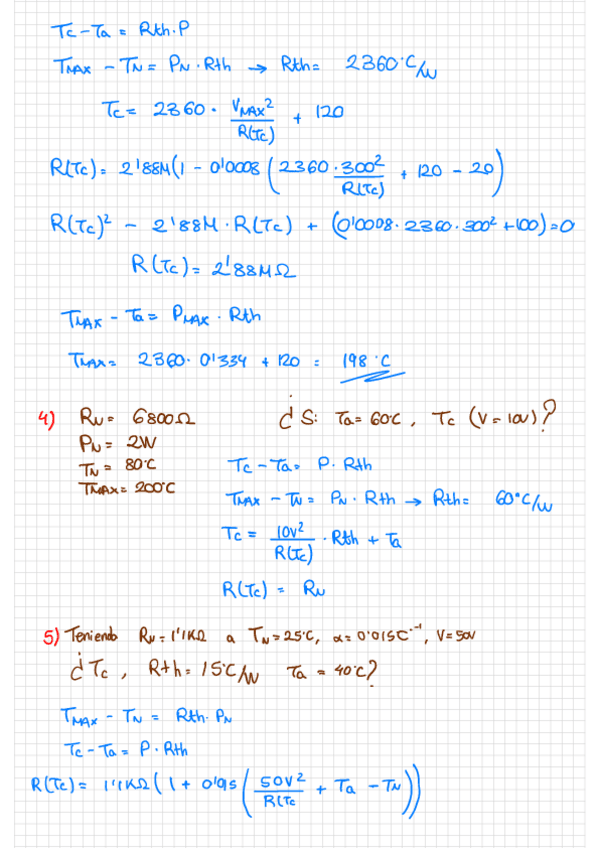 Tc - Ta = Rth · P
TMAX - TN = PN · Rth → Rth = 2360 °C/W
Tc = 2360 · VMAX² / R(Tc) + 120
R(Tc) = 2'88M (1 - 0'0008 (2360 · 300² / R(Tc) + 120 - 20)
R(Tc)² - 2'88M · R(Tc) + (0'0008 · 2360 · 300² + 100) = 0
R(Tc) = 2'88MΩ
TMAX - Ta = PMAX · Rth
TMAX = 2360 · 0'0334 + 120 = 198 °C
4) RN = 6800Ω ¿ Si Ta = 60°C, Tc (V = 10V)?
PN = 2W
TN = 80°C
TMAX = 200°C
Tc - Ta = P · Rth
TMAX - TN = PN · Rth → Rth = 60°C/W
Tc = 10V² / R(Tc) · Rth + Ta
R(Tc) = RN
5) Teniendo RN = 1'1KΩ a TN = 25°C, α = 0'015C⁻¹, V = 50V
¿ Tc, Rth = 15°C/W Ta = 40°C?
TMAX - TN = Rth · PN
Tc - Ta = P · Rth
R(Tc) = 1'1KΩ (1 + 0'015 (50V² / R(Tc + Ta - TN))